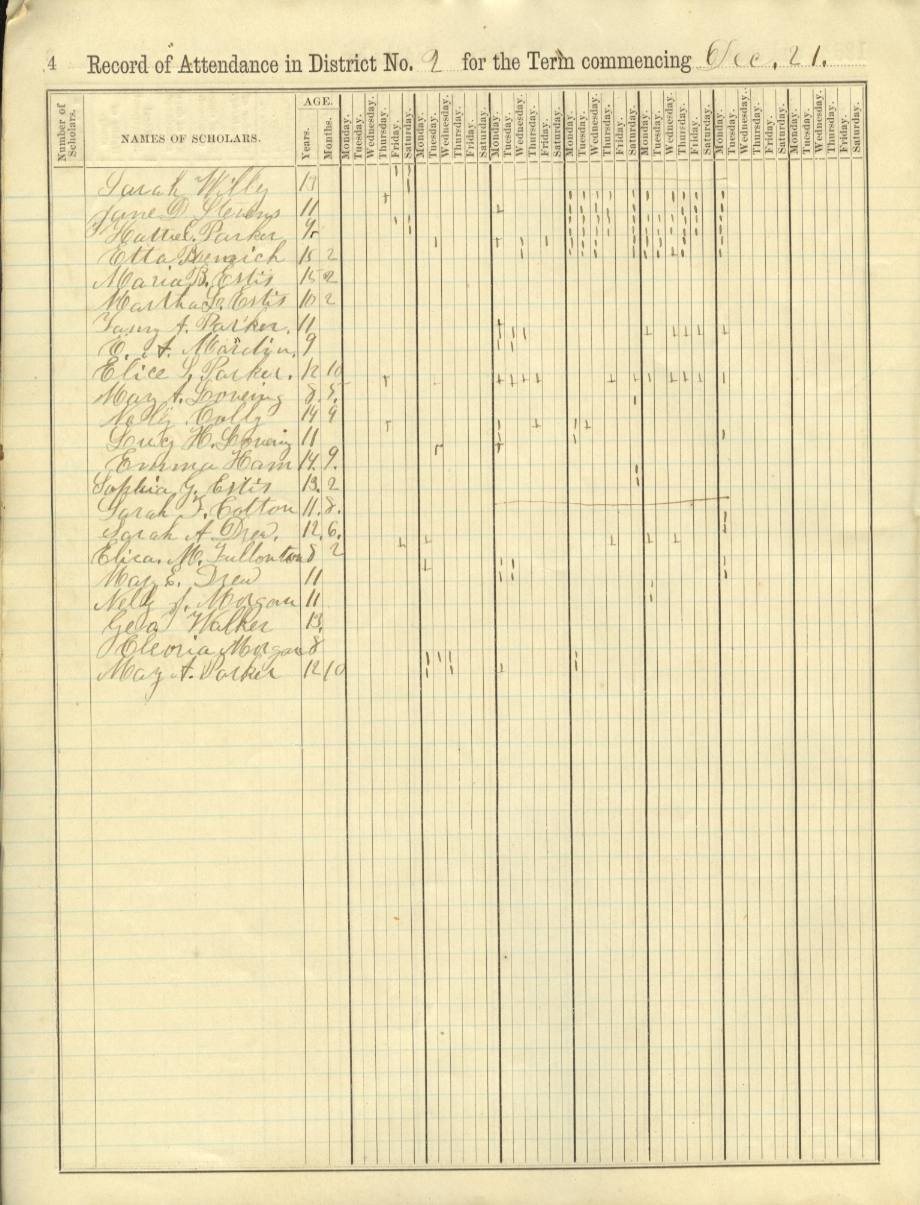 4 Record of Attendance in District No. 2 for the Term commencing Dec. 21.
Number of Scholars. NAMES OF SCHOLARS. AGE. Years. Months. Monday. Tuesday. Wednesday. Thursday. Friday. Saturday. Monday. Tuesday. Wednesday. Thursday. Friday. Saturday. Monday. Tuesday. Wednesday. Thursday. Friday. Saturday. Monday. Tuesday. Wednesday. Thursday. Friday. Saturday. Monday. Tuesday. Wednesday. Thursday. Friday. Saturday. Monday. Tuesday. Wednesday. Thursday. Friday. Saturday. Monday. Tuesday. Wednesday. Thursday. Friday. Saturday.
Sarah Willy 13
Jane D. Stevens 11
Hattie E. Parker 9
Etta 15 2
Maria B. Estis 15 2
Martha L. Estis 10 2
A. Parker. 11
A. 9
Elice S. Parker. 12 10
May A. Lovering 8. 5
Nelly Colly 14 9
Lucy H. Lovering 11
Emma Ham 14. 9.
Sophia G. Estis 13. 2
Sarah F. Cotton 11. 8.
Sarah A. Drew. 12. 6.
Eliza. M. Fullonton 8 2
May E. Drew 11
Nelly J. Morgan 11
Geo Walker 13.
Eleoria Morgan 8
May A. Parker 12 10